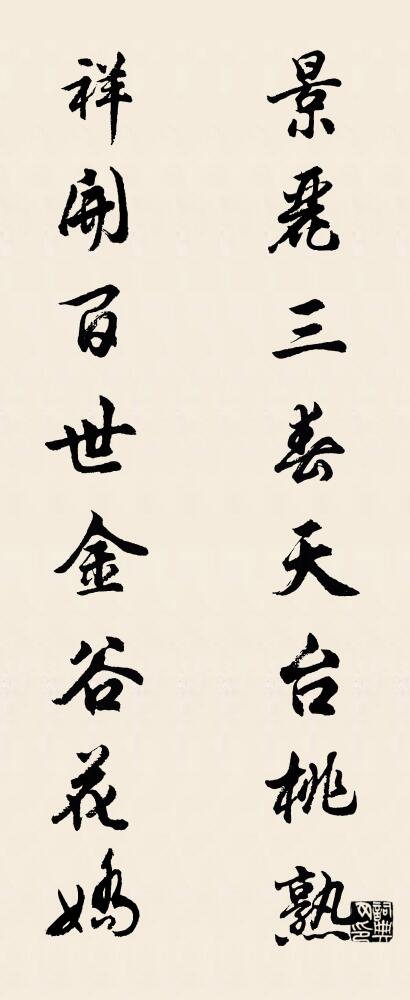 景麗三春天台桃熟
祥開百世金谷花嬌